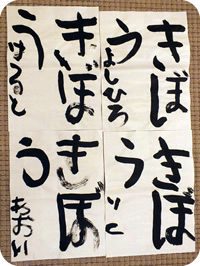 きぼ
う よしひろ
きぼ
う はると
きぼ
う
きぼ
う あおい